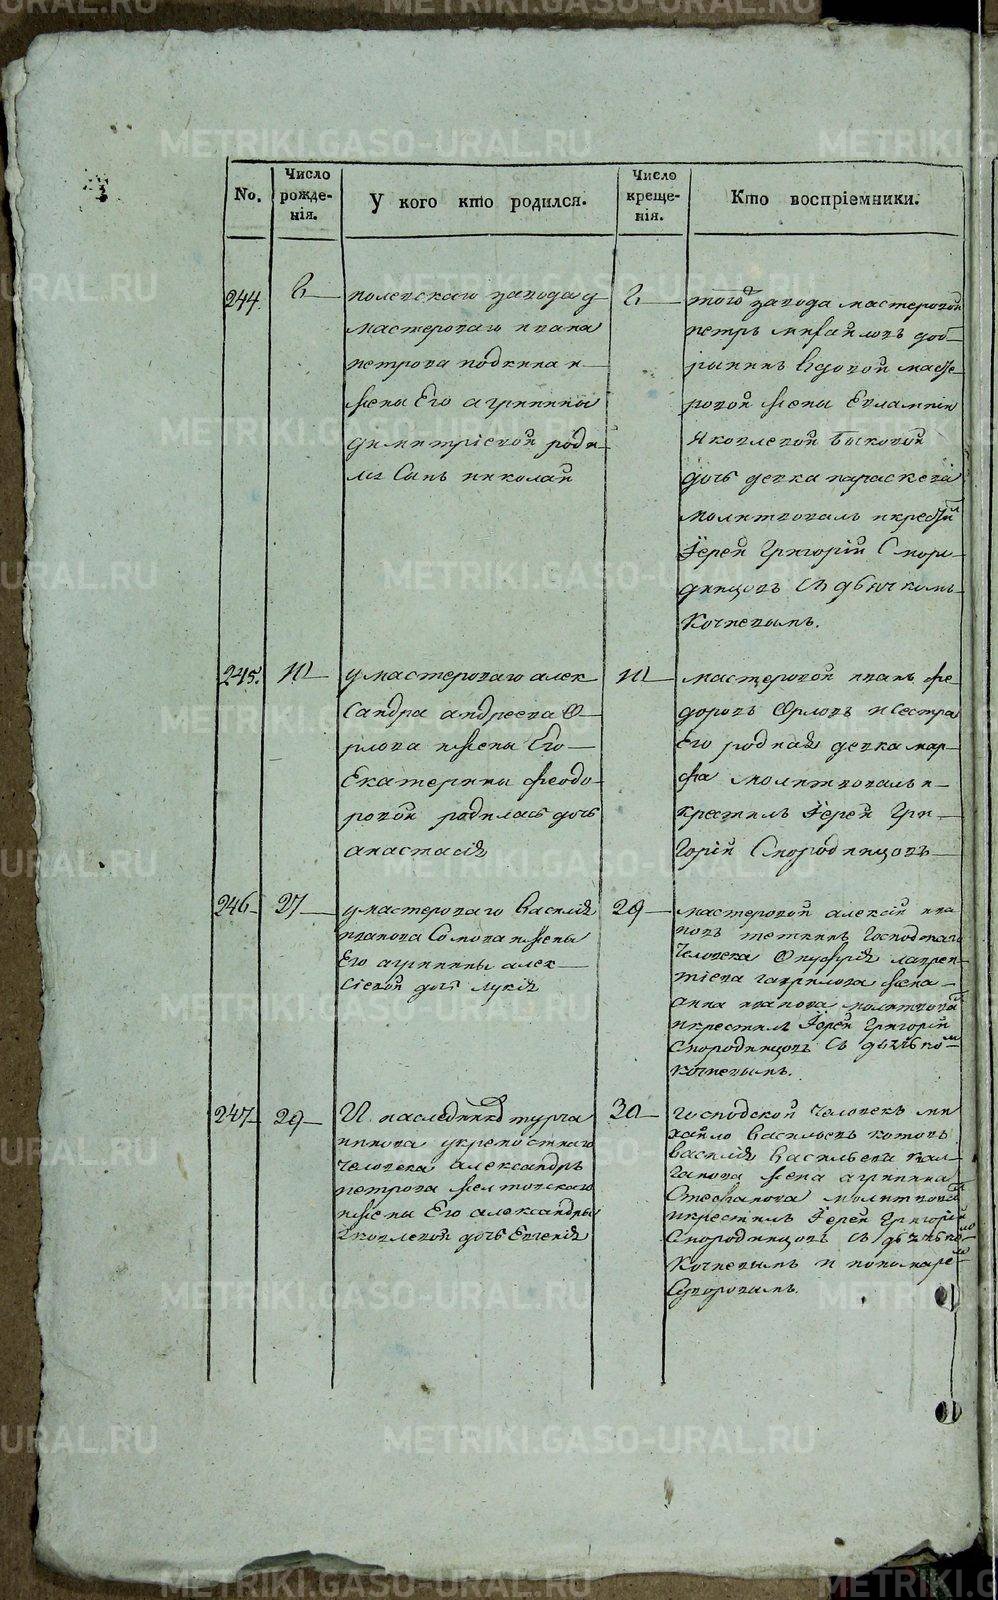 METRIKI.GASO-URAL.RU
No.
Число рожде-нія.
У кого кто родился.
Число креще-нія.
Кто воспріемники.
244.
полевскаго завода у
мастероваго ивана
петрова подкина и
жены Его агрипины
димитріевой роди
лся Сынъ николай
того завода мастеровой
петръ михайловъ доб
рынинъ вдовой масте
ровой жены Евлампіи
Яковлевой Быковой
дочь девка параскева
молитвовалъ икрести
Іерей Григорій Сморо
динцовъ съ дьячкомъ
Кочневымъ.
245.
умастероваго алек
Сандра андреева О
рлова ижены Его
Екатерины феодо
ровой родилась дочь
анастасія
мастеровой иванъ фе
доровъ Орловъ исестра
Его родная девка мар
фа молитвовалъ и
крестилъ Іерей Гри
горій Смородинцовъ
246
27
умастероваго василія
иванова Сомова ижены
Его агрипины алек
сіевой дочь лукія
29
мастеровой алексій ива
новъ тетинъ Господскаго
человека Онуфрія лаврен
тіева гаврилова жена
анна иванова молитвовал
икрестилъ Іерей Григорій
Смородинцовъ съ дьячком
кочневымъ.
247
29
И наследник турча
нинова укрепостнаго
человека александръ
петрова
ижены Его александры
Яковлевой дочь Евгенія
30
господской человекъ ми
хайло васильевъ котовъ
василія васильева кал
ганова жена агрипина
Стефанова молитвовал
икрестилъ Іерей Григорій
Смородинцовъ съ дьячко
Кочневымъ и пономаре
Суворовымъ.